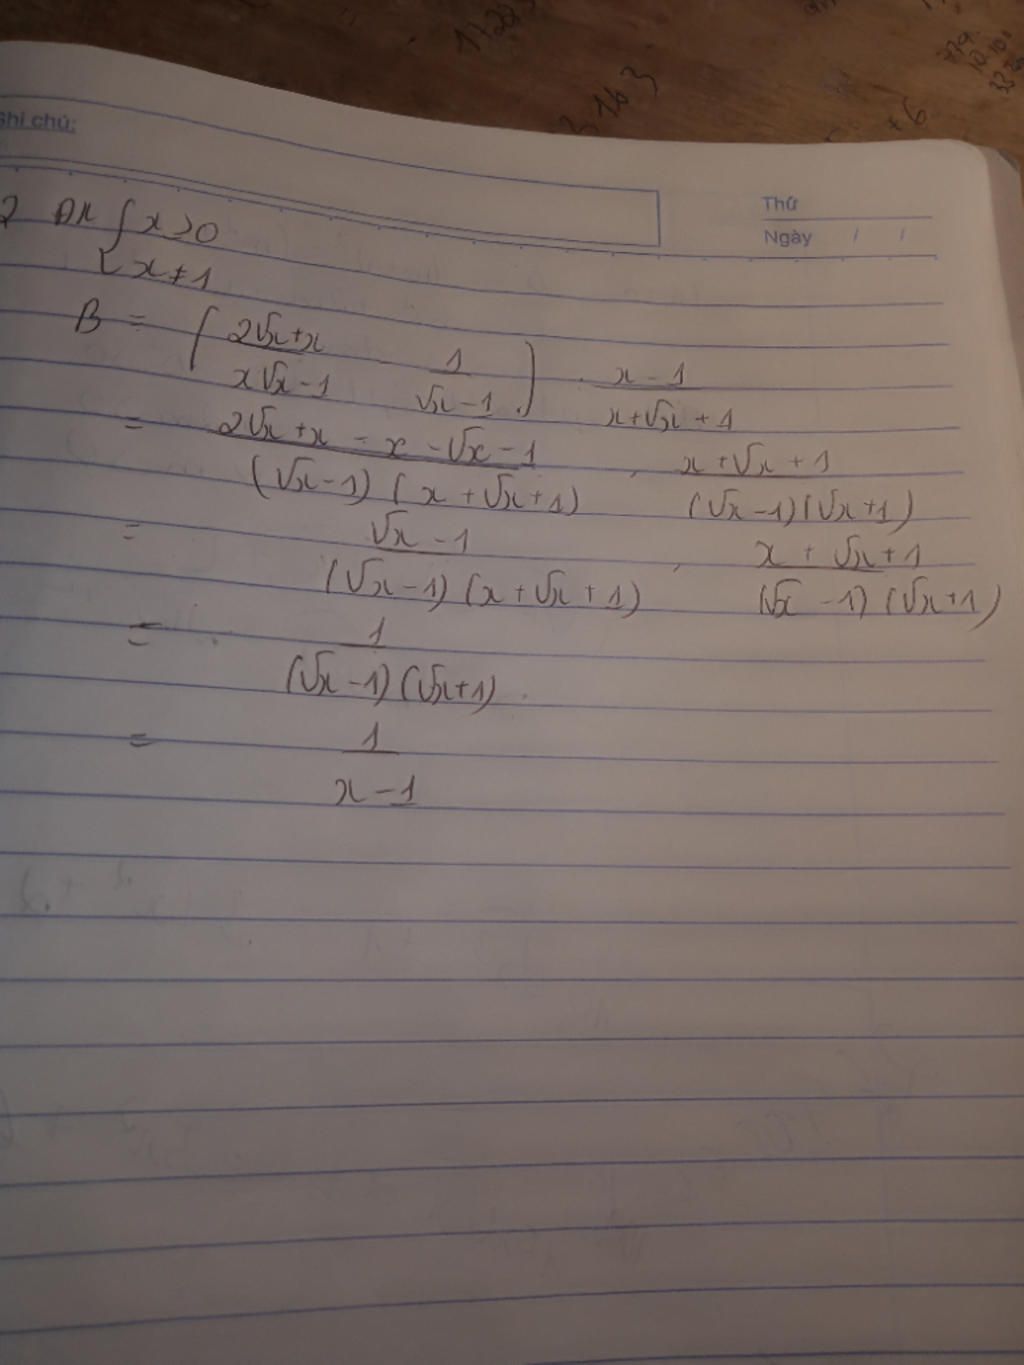 Ghi chú:
Thứ
Ngày / /
2 ĐK { x > 0
x ≠ 1
B = ( 2√x + x / x√x - 1   1 / √x - 1 ) . x - 1 / x + √x + 1
= 2√x + x - x - √x - 1 / (√x - 1) (x + √x + 1) . x + √x + 1 / (√x - 1) (√x + 1)
= √x - 1 / (√x - 1) (x + √x + 1) . x + √x + 1 / (√x - 1) (√x + 1)
= 1 / (√x - 1) (√x + 1)
= 1 / x - 1